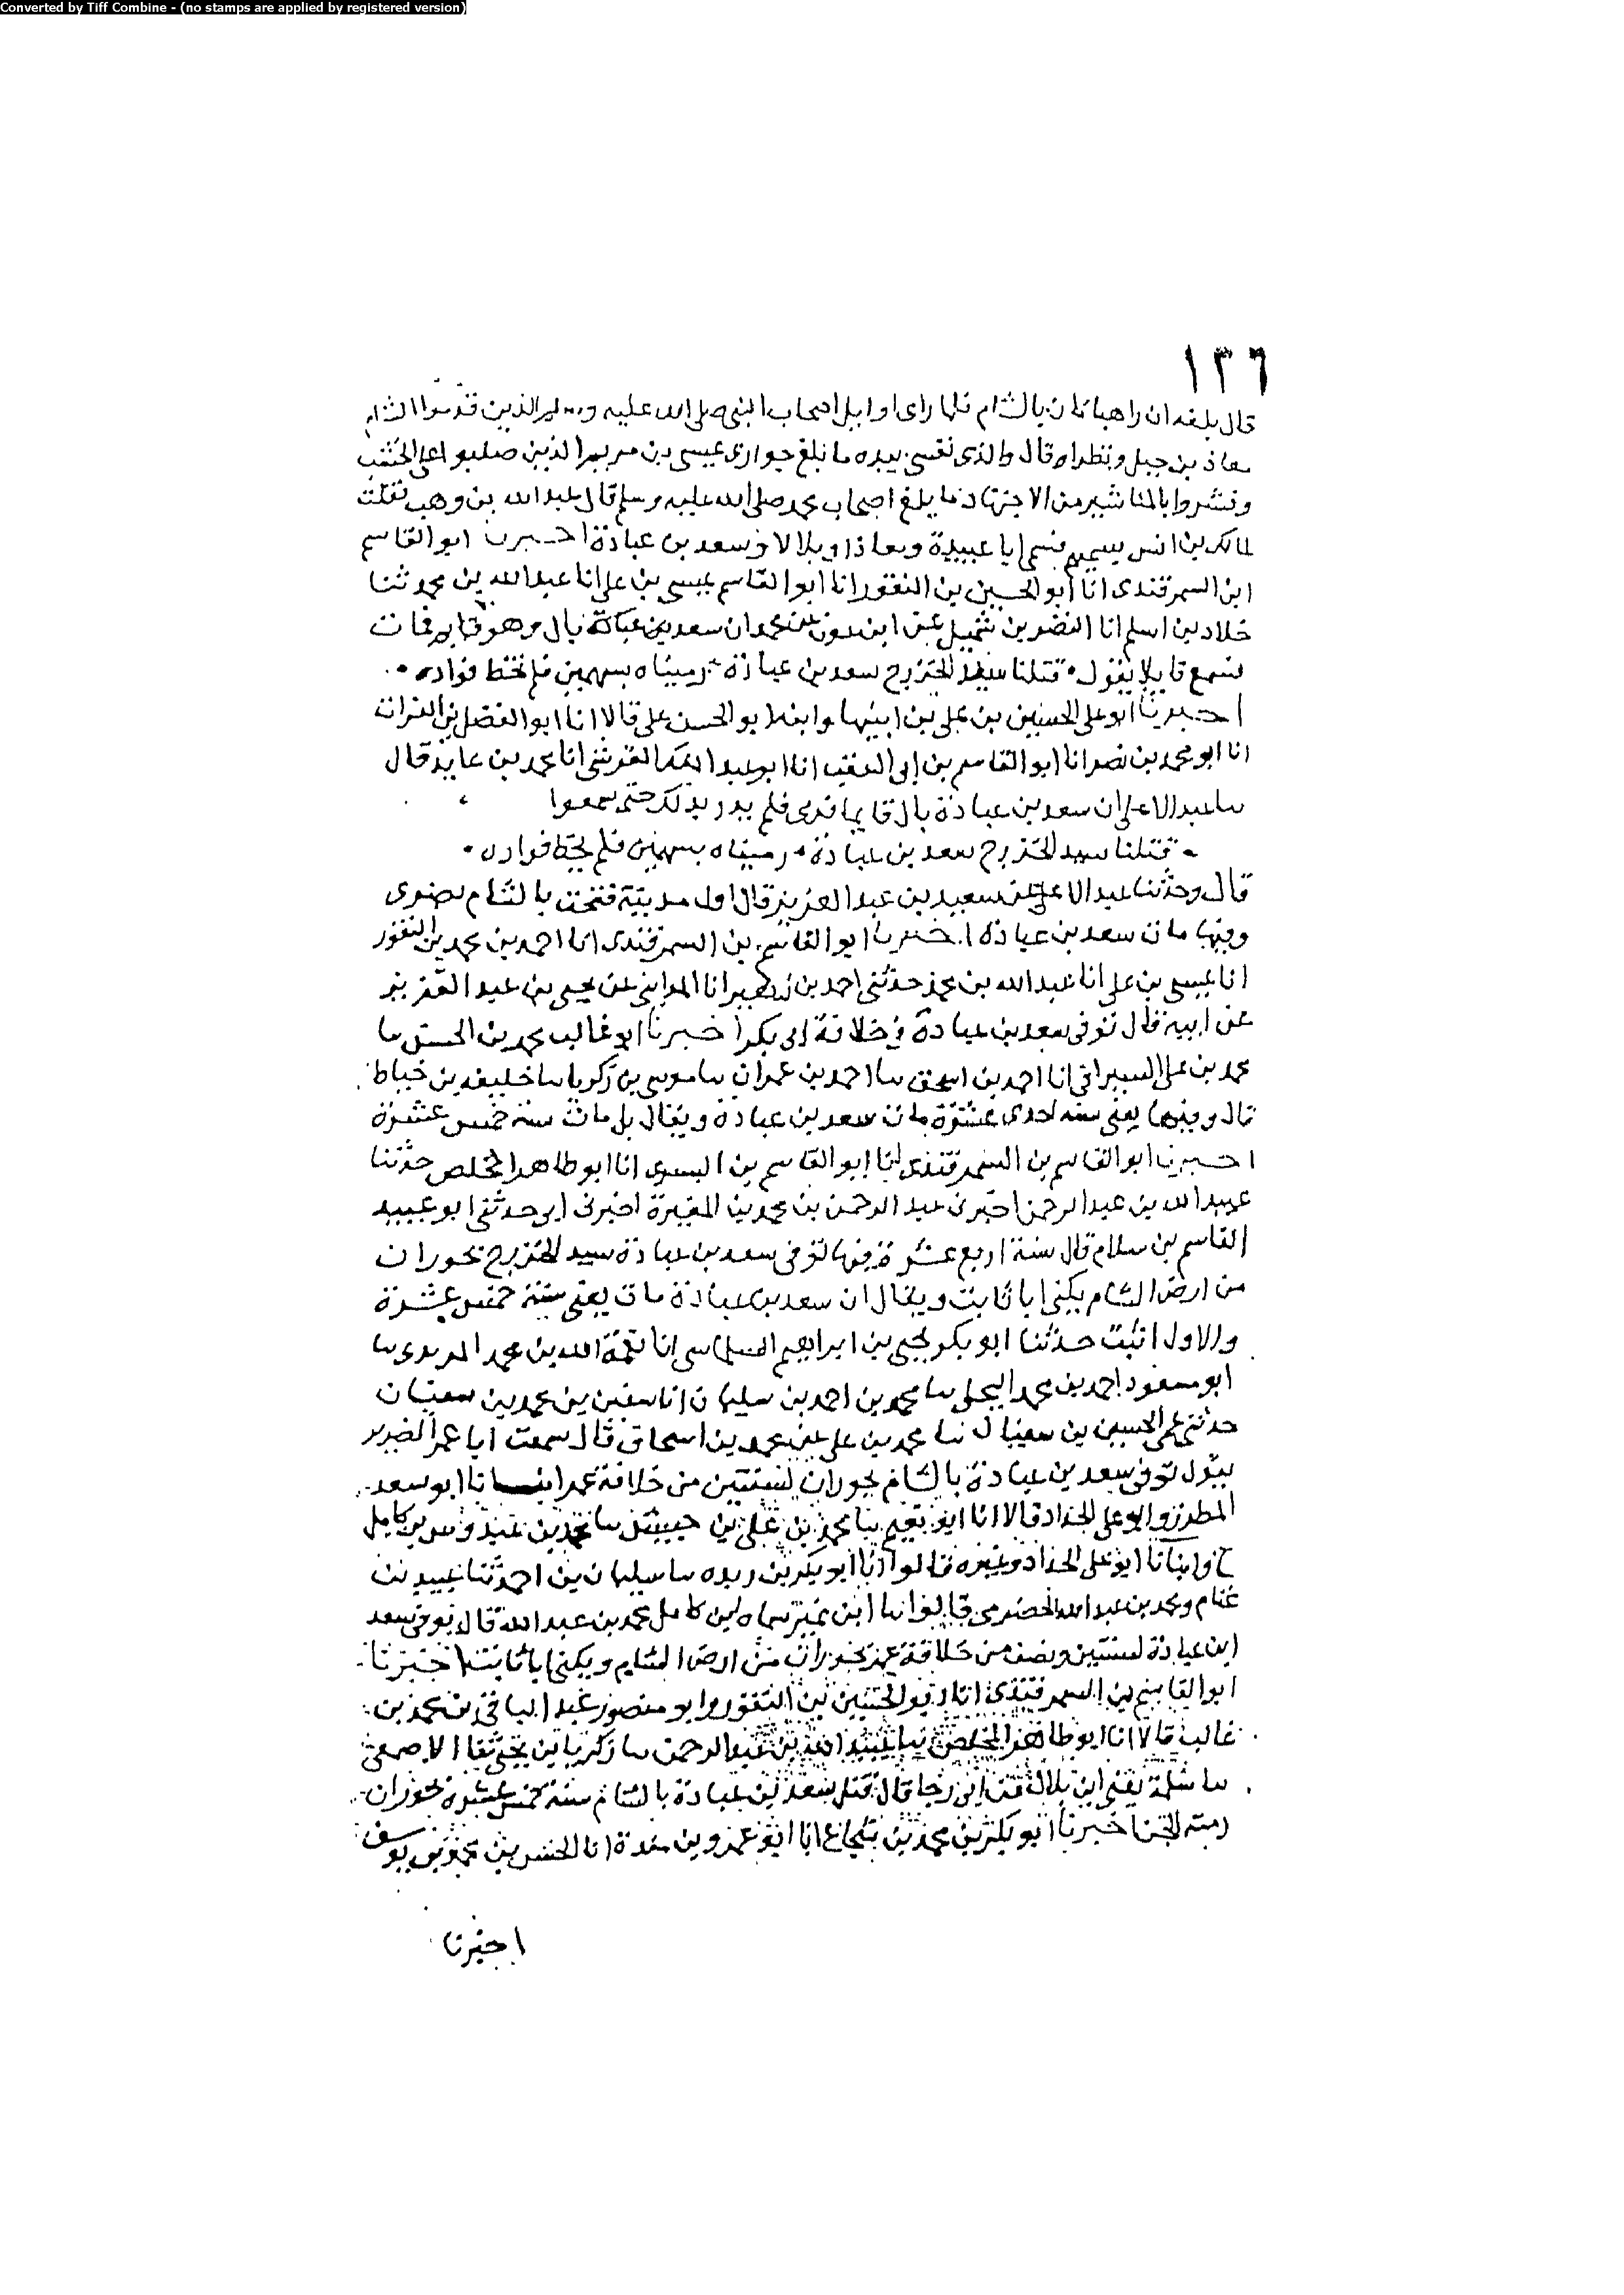 Converted by Tiff Combine - (no stamps are applied by registered version)
١٣٦
قال بلغه ان راهبا كان بالشام فلما راى اوايل اصحاب النبى صلى الله عليه وسلم الذين قدموا الشام
معاذ بن جبل ونظراه قال والذى نفسى بيده ما بلغ حوارى عيسى بن مريم الذين صلبوا على الخشب
ونشروا بالمناشير من الاجتهاد ما بلغ اصحاب محمد صلى الله عليه وسلم قال عبد الله بن وهب فقلت
لمالك بن انس يسميهم فسمى ابا عبيدة ومعاذا وبلالا وسعد بن عبادة اخبرنا ابو القاسم
ابن السمرقندى انا ابو الحسين بن النقور انا ابو القاسم عيسى بن على انا عبد الله بن محمد ثنا
خلاد بن اسلم انا النضر بن شميل عن ابن عون عن محمد ان سعد بن عبادة بال وهو قايم فمات
فسمع قايلا يقول قتلنا سيد الخزرج سعد بن عبادة رميناه بسهمين فلم نخط فواده
اخبرنا ابو على الحسين بن على بن اشليها وابنه ابو الحسن على قالا انا ابو الفضل بن الفرات
انا ابو محمد بن نصر انا ابو القاسم بن ابى العقب انا ابو عبد الملك القرشى انا محمد بن عايذ قال
سا عبد الاعلى ان سعد بن عبادة بال قايما فرمى فلم يدر بذلك حتى سمعوا
قتلنا سيد الخزرج سعد بن عبادة رميناه بسهمين فلم يخط فواده
قال وحدثنا عبد الاعلى عن سعيد بن عبد العزيز قال اول مدينة فتحت بالشام بصرى
وفيها مات سعد بن عبادة اخبرنا ابو القاسم بن السمرقندى انا احمد بن محمد بن النقور
انا عيسى بن على انا عبد الله بن محمد حدثنى احمد بن زهير انا المداينى عن يحيى بن عبد العزيز
عن ابيه قال توفى سعد بن عبادة فى خلافة ابى بكر اخبرنا ابو غالب محمد بن الحسن سا
محمد بن على السيرافى انا احمد بن اسحق سا احمد بن عمران سا موسى بن زكريا سا خليفه بن خياط
قال وفيها يعنى سنة احدى عشرة مات سعد بن عبادة ويقال بل مات سنة خمس عشرة
اخبرنا ابو القاسم بن السمرقندى انا ابو القاسم بن البسرى انا ابو طاهر المخلص حدثنا
عبيد الله بن عبد الرحمن اخبرنى عبد الرحمن بن محمد بن المغيرة اخبرنى ابى حدثنى ابو عبيد
القاسم بن سلام قال سنة اربع عشرة فيها توفى سعد بن عبادة سيد الخزرج بحوران
من ارض الشام يكنى ابا ثابت ويقال ان سعد بن عبادة مات يعنى سنة خمس عشرة
والاول اثبت حدثنا ابو بكر يحيى بن ابراهيم السلماسى انا نعمة الله بن محمد المرندى سا
ابو مسعود احمد بن محمد البجلى سا محمد بن احمد بن سليمان انا سفين بن محمد بن سفيان
حدثنى عمى الحسين بن سفيان سا محمد بن على عن محمد بن اسحاق قال سمعت ابا عمر الضرير
يقول توفى سعد بن عبادة بالشام بحوران لسنتين من خلافة عمر انبانا ابو سعد
المطرز وابو على الحداد قالا انا ابو نعيم سا محمد بن على بن حبيش سا محمد بن عبدوس بن كامل
ح وانبانا ابو على الحداد وغيره قالوا انا ابو بكر بن ريده سا سليمان بن احمد ثنا عبيد بن
غنام ومحمد بن عبد الله الحضرمى قالوا سا ابن نمير سماه ابن كامل محمد بن عبد الله قال توفى سعد
ابن عبادة لسنتين ونصف من خلافة عمر بحوران من ارض الشام ويكنى ابا ثابت اخبرنا
ابو القاسم بن السمرقندى انا ابو الحسين بن النقور وابو منصور عبد الباقى بن محمد بن
غالب قالا انا ابو طاهر المخلص سا عبيد الله بن عبد الرحمن سا زكريا بن يحيى ثنا الاصمعى
سا سلمة يعنى ابن بلال عن ابى رجا قال قتل سعد بن عبادة بالشام سنة خمس عشرة بحوران
رمته الجن اخبرنا ابو بكر بن محمد بن شجاع انا ابو عمرو بن منده انا الحسن بن محمد بن يوسف
اخبرنا